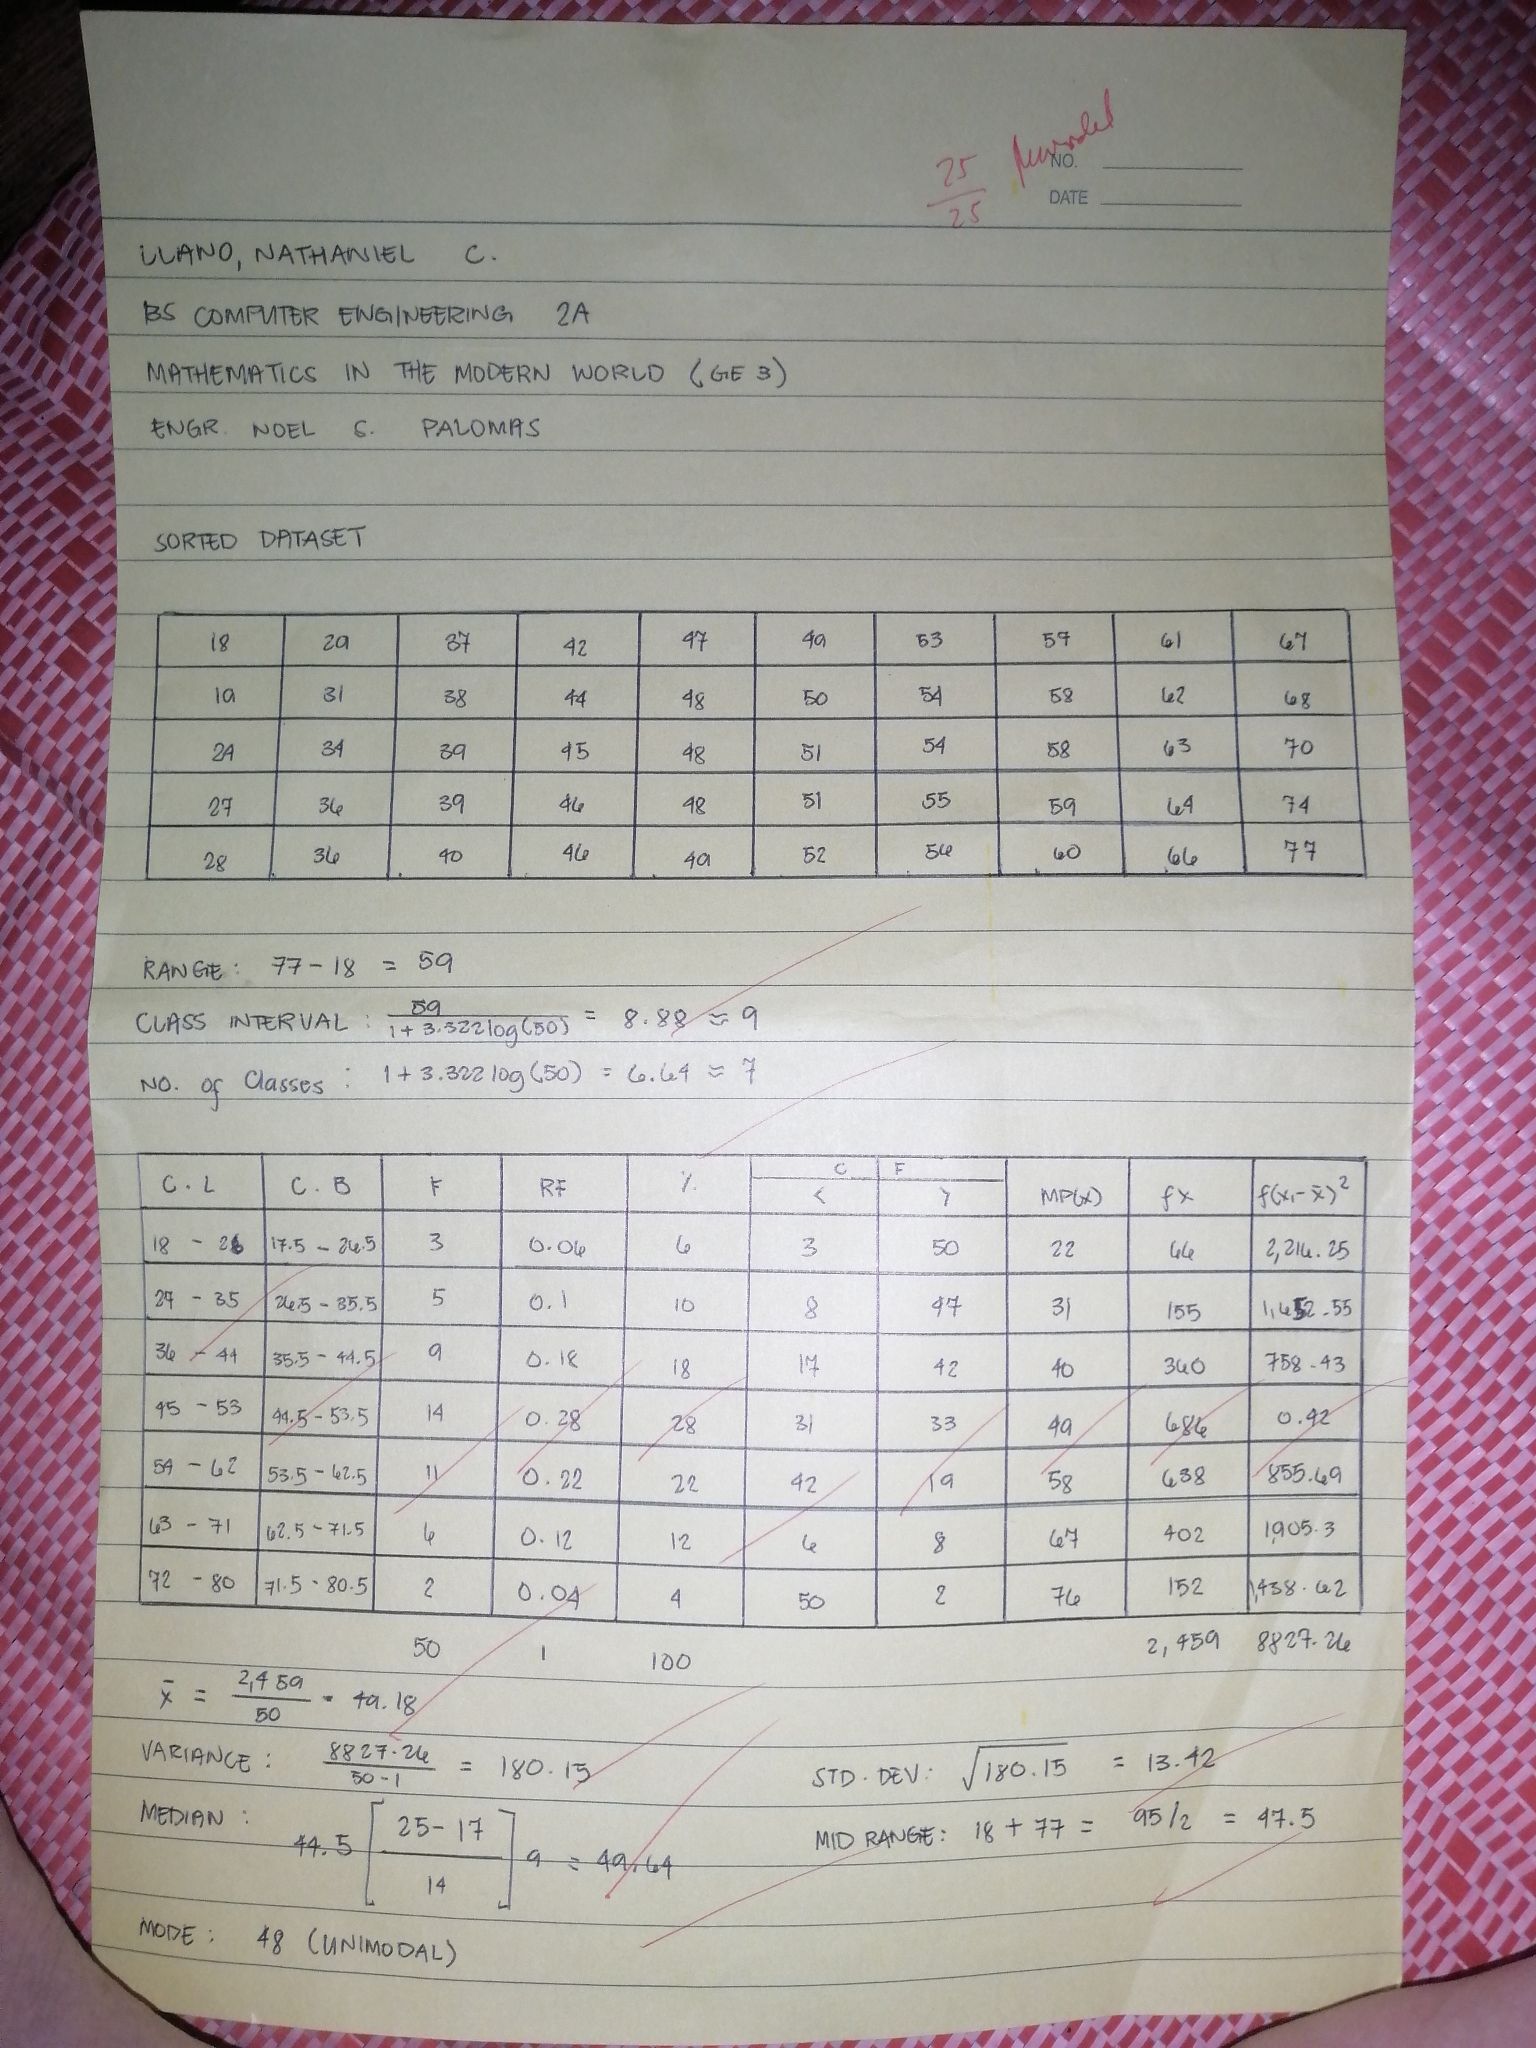 25
25
NO.
DATE
LLANO, NATHANIEL C.
BS COMPUTER ENGINEERING 2A
MATHEMATICS IN THE MODERN WORLD (GE 3)
ENGR. NOEL S. PALOMAS
SORTED DATASET
18 29 37 42 47 49 53 57 61 67
19 31 38 44 48 50 54 58 62 68
24 34 39 45 48 51 54 58 63 70
27 36 39 46 48 51 55 59 64 74
28 36 40 46 49 52 56 60 66 77
RANGE: 77 - 18 = 59
CLASS INTERVAL: 59 / 1 + 3.322 log(50) = 8.88 ≈ 9
NO. of Classes: 1 + 3.322 log(50) = 6.64 ≈ 7
C.L C.B F RF % C F MP(x) fx f(x₁-x̄)²
< >
18 - 26 17.5 - 26.5 3 0.06 6 3 50 22 66 2,216.25
27 - 35 26.5 - 35.5 5 0.1 10 8 47 31 155 1,652.55
36 - 44 35.5 - 44.5 9 0.18 18 17 42 40 360 758.43
45 - 53 44.5 - 53.5 14 0.28 28 31 33 49 686 0.42
54 - 62 53.5 - 62.5 11 0.22 22 42 19 58 638 855.69
63 - 71 62.5 - 71.5 6 0.12 12 6 8 67 402 1905.3
72 - 80 71.5 - 80.5 2 0.04 4 50 2 76 152 1,438.62
50 1 100 2,459 8827.26
x̄ = 2,459 / 50 = 49.18
VARIANCE: 8827.26 / 50-1 = 180.15
STD. DEV: √180.15 = 13.42
MEDIAN: 44.5 [25-17 / 14] 9 = 49.64
MID RANGE: 18 + 77 = 95/2 = 47.5
MODE: 48 (UNIMODAL)